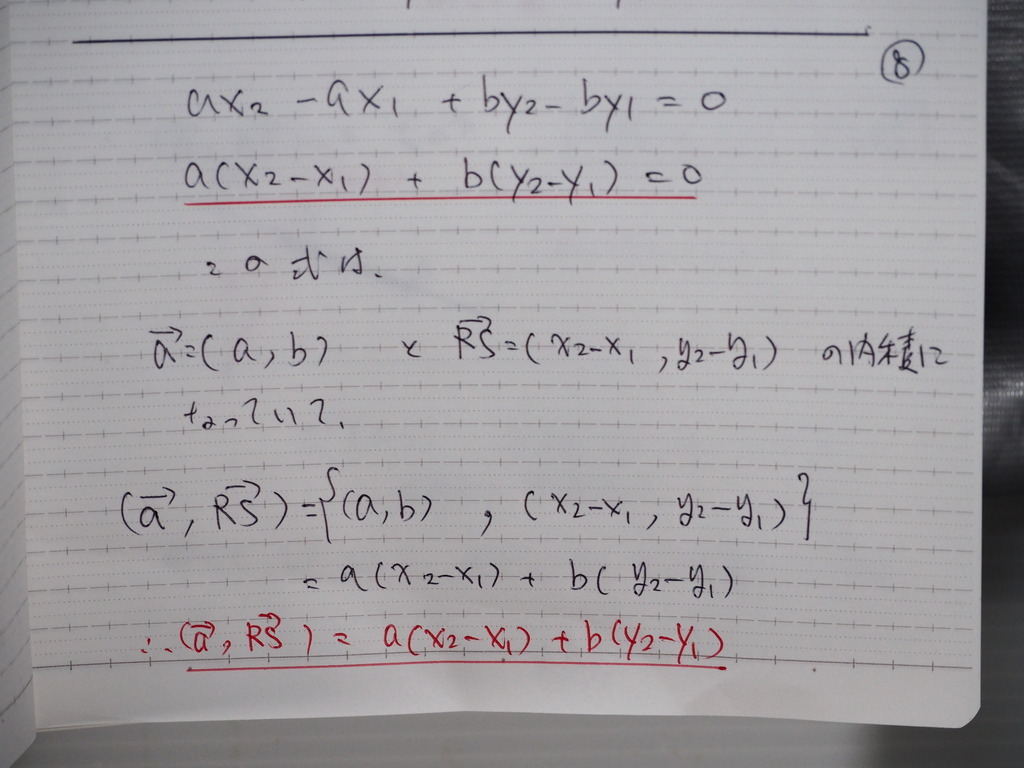 ⑧
ax₂ - ax₁ + by₂ - by₁ = 0
a(x₂-x₁) + b(y₂-y₁) = 0
この式は、
a⃗=(a,b) と RS⃗=(x₂-x₁, y₂-y₁) の内積に
なっていて、
(a⃗, RS⃗)={(a,b), (x₂-x₁, y₂-y₁)}
= a(x₂-x₁) + b(y₂-y₁)
∴(a⃗, RS⃗) = a(x₂-x₁) + b(y₂-y₁)